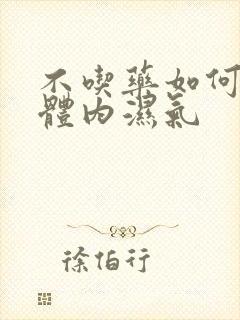 不喫藥如何
體內濕氣
徐伯行